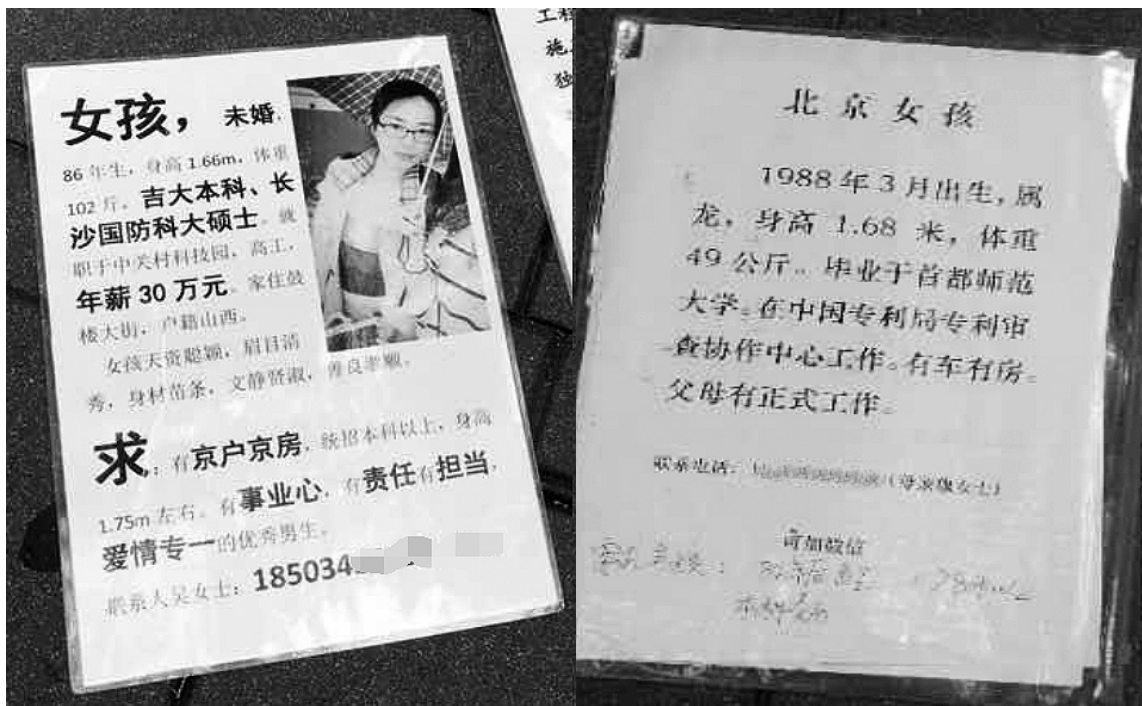 女孩，未婚，
86年生，身高1.66m，体重
102斤。吉大本科、长
沙国防科大硕士。就
职于中关村科技园，高工，
年薪30万元。家住鼓
楼大街，户籍山西。
女孩天资聪颖，眉目清
秀，身材苗条，文静贤淑，善良孝顺。
求：有京户京房，统招本科以上，身高
1.75m左右。有事业心，有责任有担当，
爱情专一的优秀男生。
联系人吴女士：185034
工程
施
独
北京女孩
1988年3月出生，属
龙，身高1.68米，体重
49公斤。毕业于首都师范
大学。在中国专利局专利审
查协作中心工作。有车有房。
父母有正式工作。
联系电话：
可加微信